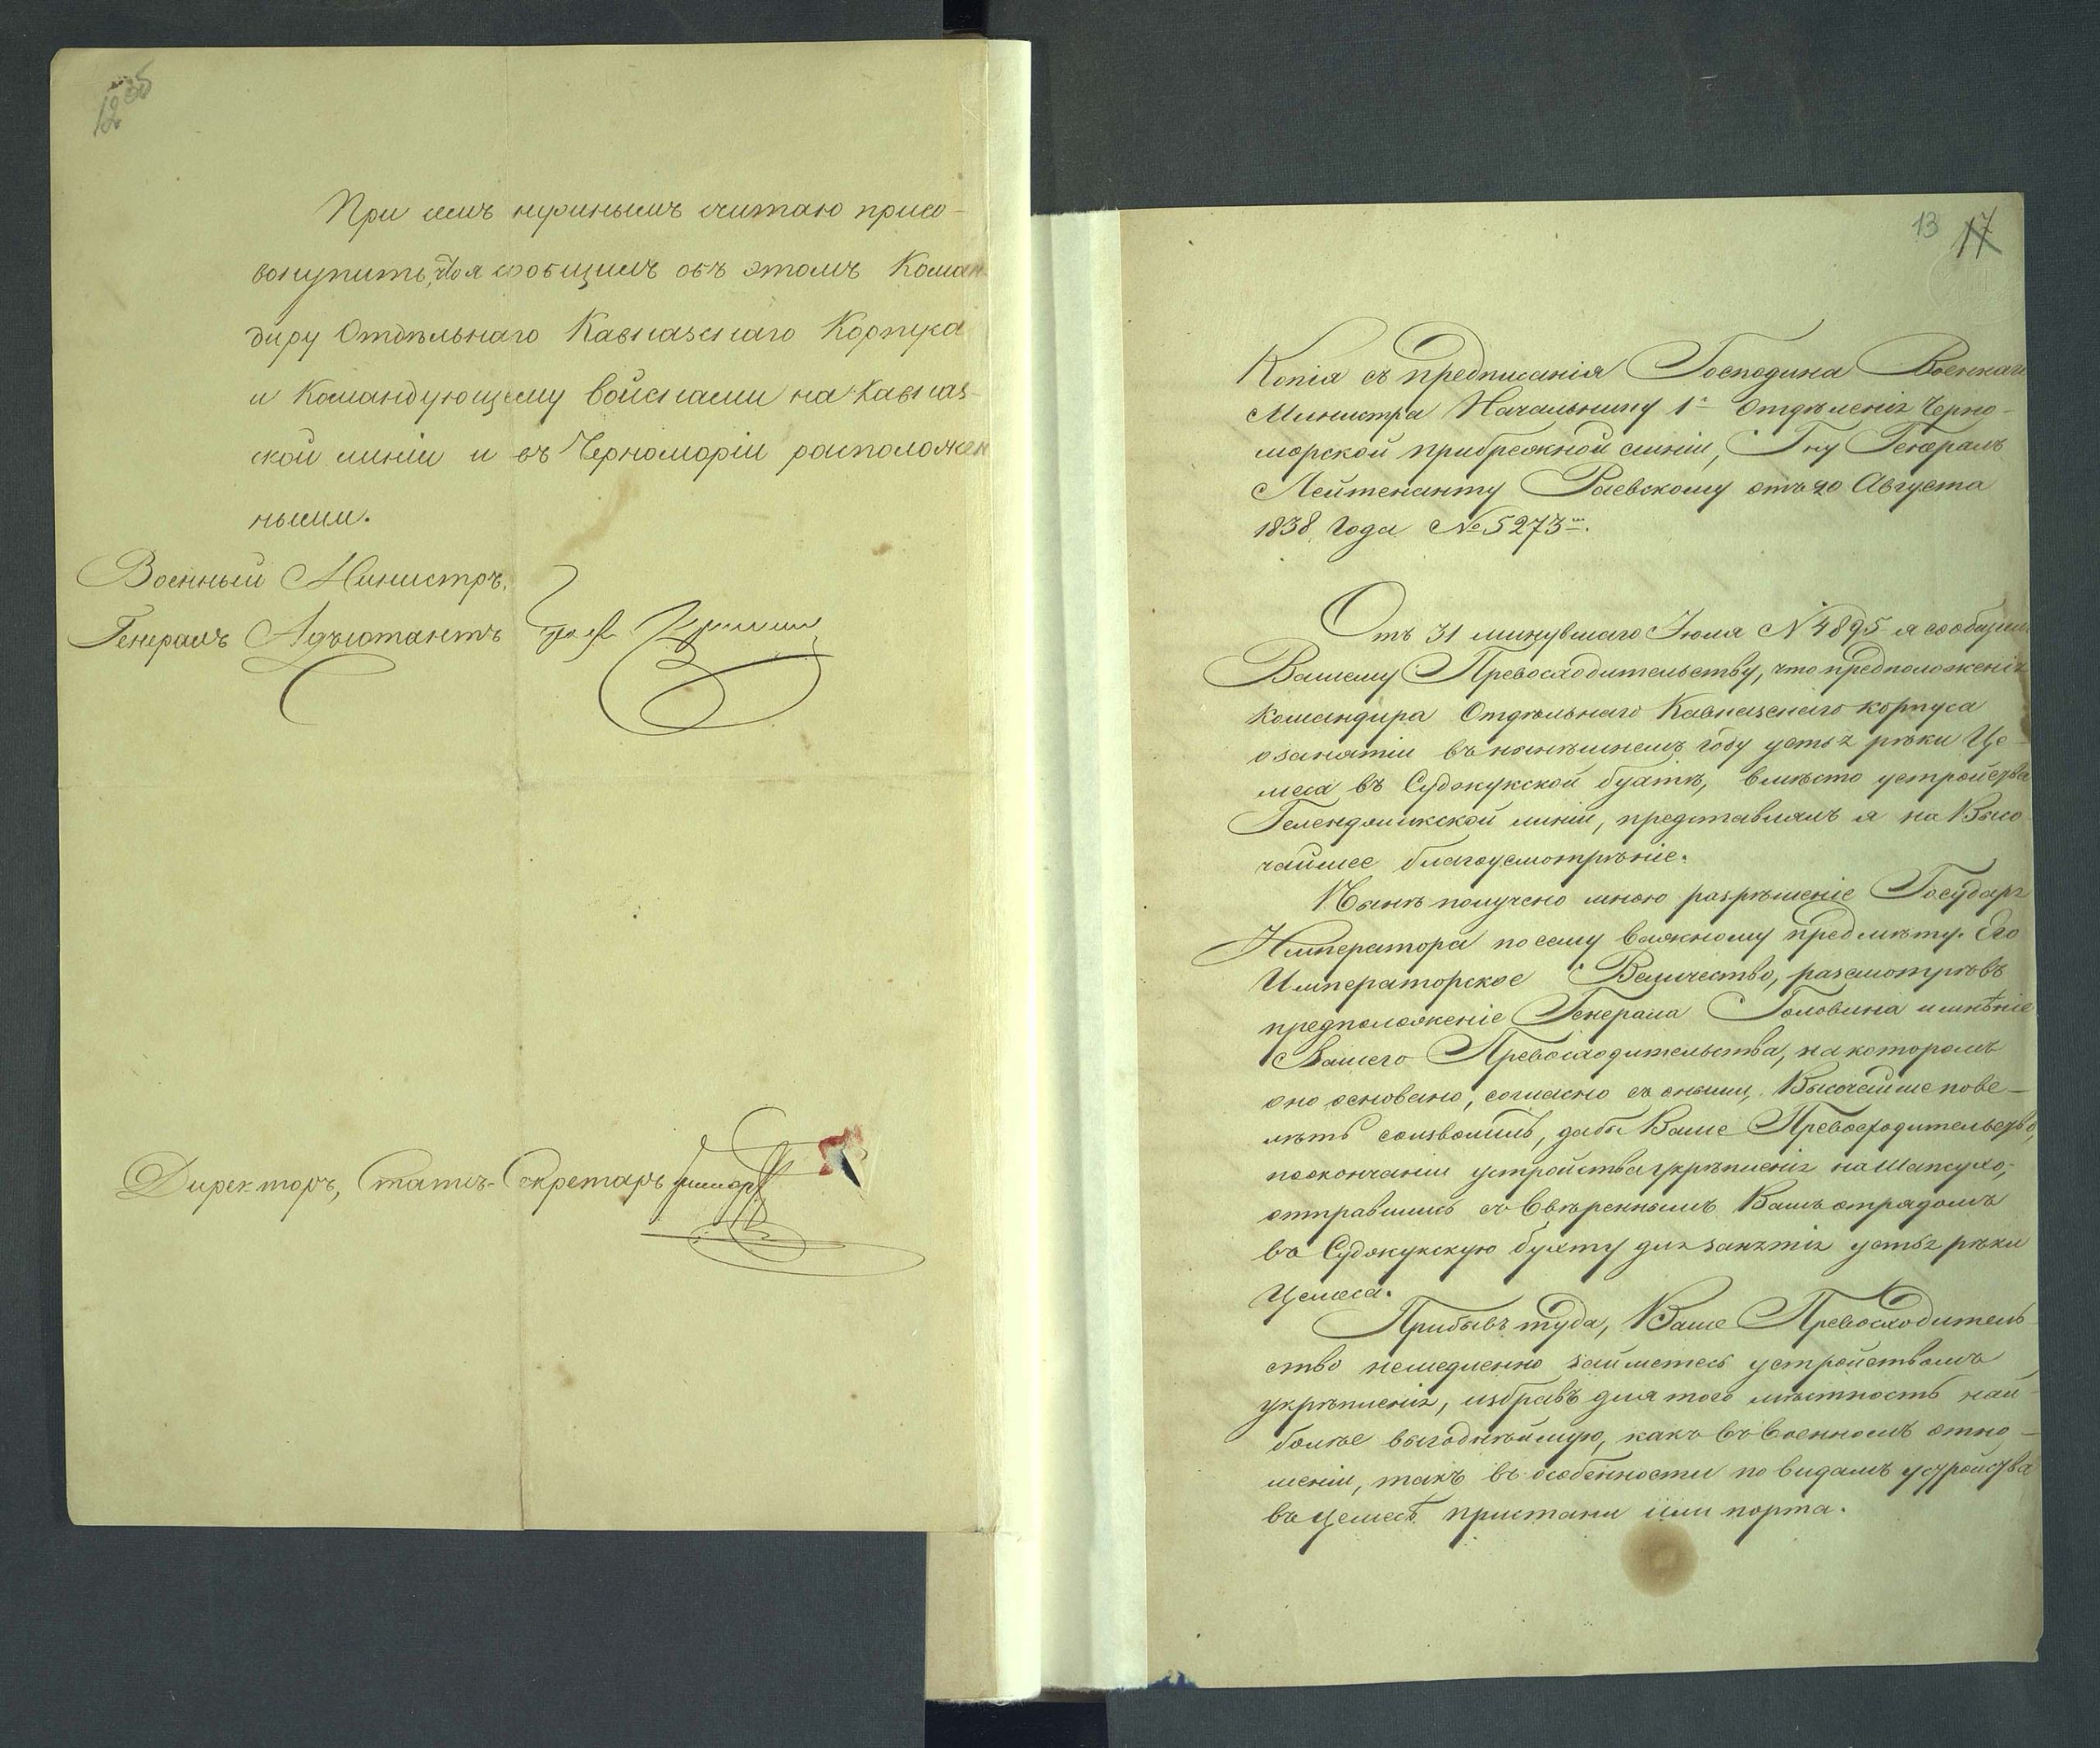 12 об
При семъ нужнымъ считаю присо-
вокупить, что я сообщилъ объ этомъ Коман-
диру Отдѣльнаго Кавказскаго Корпуса
и Командующему войсками на Кавказ-
ской линіи и въ Черноморіи расположен
ными.
Военный Министръ,
Генералъ Адъютантъ Граф
Директоръ, Статсъ-Секретарь
13 17
Копія съ предписанія Господина Военнаго
Министра Начальнику 1го Отдѣленія Черно-
морской прибрежной линіи, Гну Генералъ
Лейтенанту Раевскому отъ 20 Августа
1838 Года № 5273й.
Отъ 31 минувшаго Іюля № 4895 я сообщилъ
Вашему Превосходительству, что предположенія
Командира Отдѣльнаго Кавказскаго корпуса
о занятіи въ нынѣшнемъ году устья рѣки Це-
меса въ Суджукской бухтѣ, вмѣсто устройства
Геленджикской линіи, представлялъ я на Высо
чайшее благоусмотрѣніе.
Нынѣ получено мною разрѣшеніе Государя
Императора по сему важному предмѣту. Его
Императорское Величество, разсмотрѣвъ
предположеніе Генерала Головина и мнѣніе
Вашего Превосходительства, на которомъ
оно основано, согласно съ онымъ, Высочайше пове-
лѣть соизволилъ, дабы Ваше Превосходительство,
по окончаніи устройства укрѣпленія на Шапсухо,
отправились съ ввѣреннымъ Вамъ отрядомъ
въ Суджукскую бухту для занятія устья рѣки
Цемеса.
Прибывъ туда, Ваше Превосходитель
ство немедленно займетесь устройствомъ
укрѣпленія, избравъ для того мѣстность наи-
болѣе выгоднѣйшую, какъ въ военномъ отно-
шеніи, такъ въ особенности по видамъ устройства
въ Цемесѣ пристани или порта.